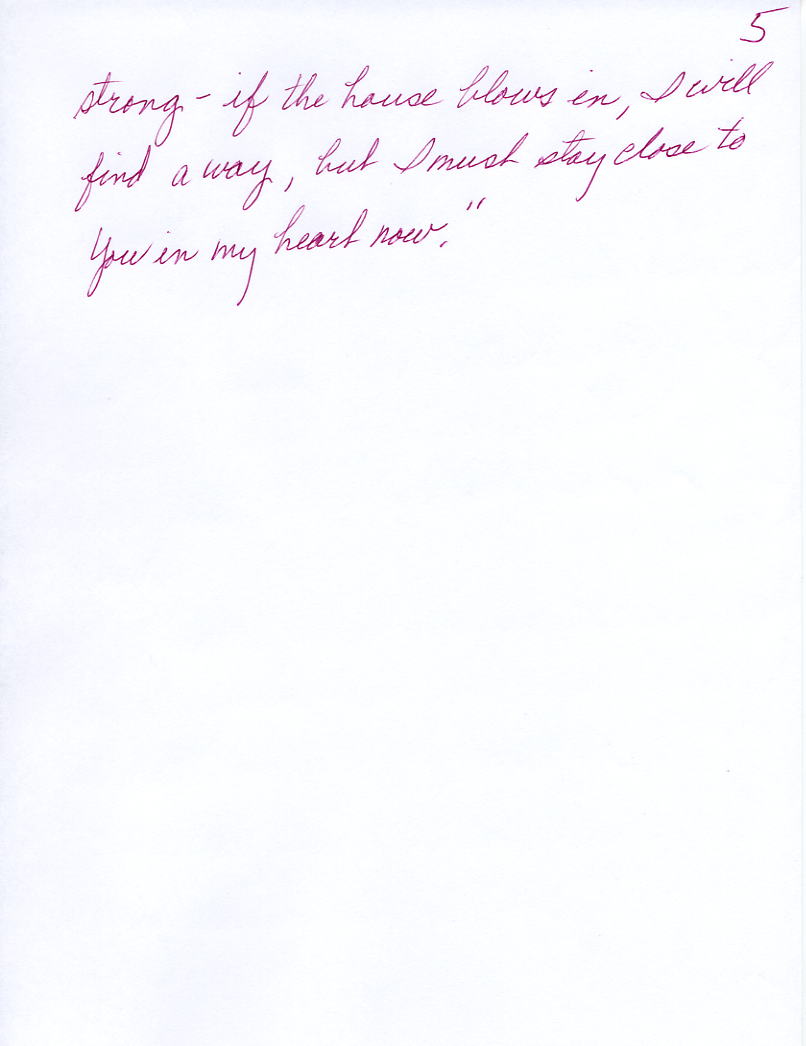 5
strong - if the house blows in, I will
find a way, but I must stay close to
You in my heart now."